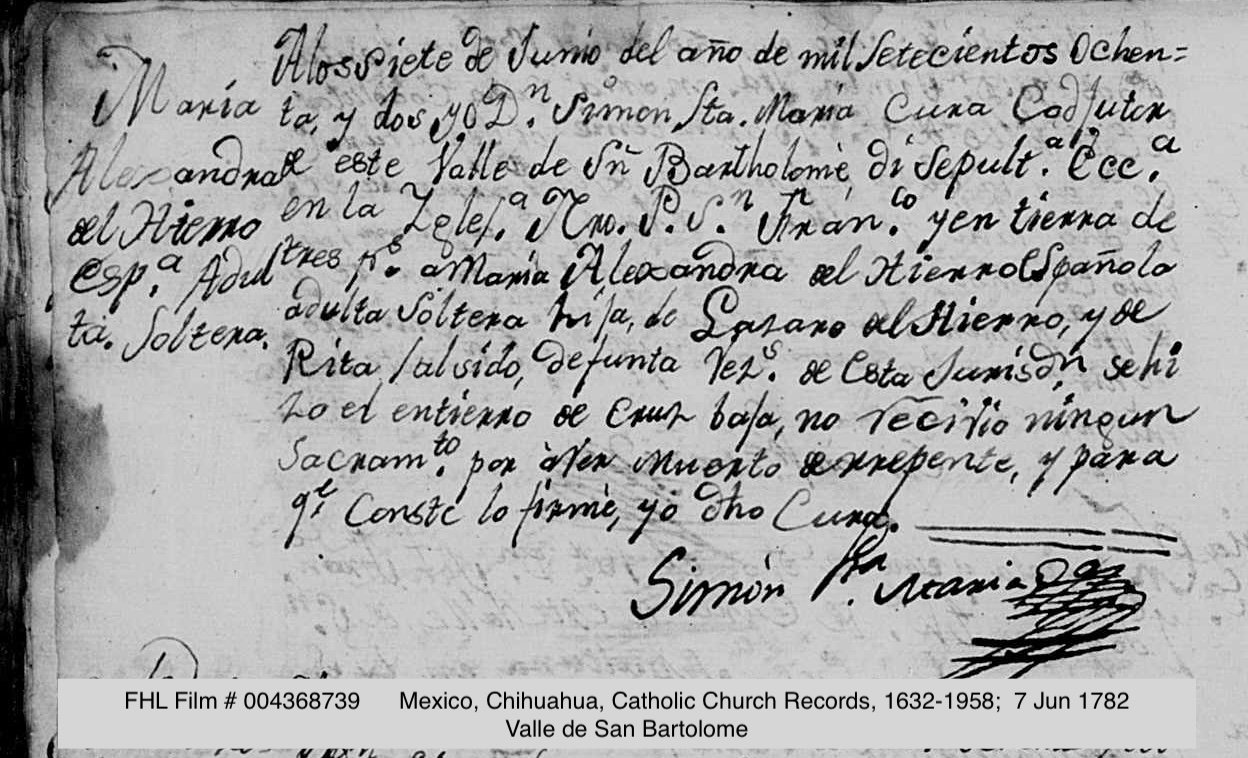 María
Alexandra
del Hierro
Esp.ª Adul
ta. Soltera.
A los siete de Junio del año de mil Setecientos Ochen=
ta, y dos yo D.n Simon Sta. Maria Cura Coadjutor
de este Valle de Sn Bartholomè di Sepult.ª Ecc.ª
en la Iglesª. Nro. P. S.n Frán.co y en tierra de
tres p.s a Maria Alexandra del Hierro Española
adulta Soltera hija, de Lazaro del Hierro, y de
Rita Salsido, defunta Vez.s de Esta Jurisd.n se hi
zo el entierro de Cruz baja, no recivio ningun
Sacram.to por àver muerto de rrepente, y para
q.e Conste lo firmè, yo dho Cura.
Simón Sta. Maria
FHL Film # 004368739 Mexico, Chihuahua, Catholic Church Records, 1632-1958; 7 Jun 1782
Valle de San Bartolome